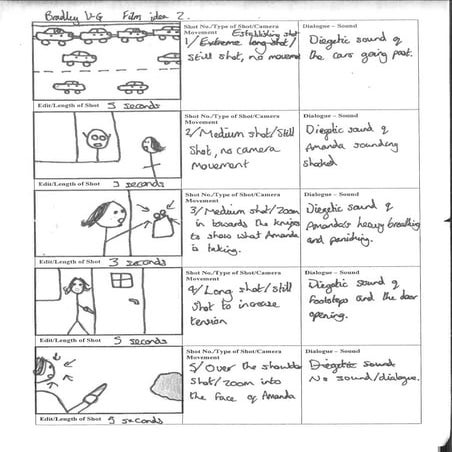 Bradley V-G Film idea 2.
Shot No./Type of Shot/Camera
Movement Establishing shot
1/ Extreme long shot/
Still shot, no movement
Dialogue – Sound
Diegetic sound of
the cars going past.
Edit/Length of Shot 5 seconds
Shot No./Type of Shot/Camera
Movement
2/ Medium shot/Still
Shot, no camera
movement
Dialogue – Sound
Diegetic sound of
Amanda sounding
shocked
Edit/Length of Shot 3 seconds
Shot No./Type of Shot/Camera
Movement
3/ Medium shot/Zoom
in towards the knife
to show what Amanda
is taking.
Dialogue – Sound
Diegetic sound of
Amanda's heavy breathing
and
Edit/Length of Shot 3 seconds
Shot No./Type of Shot/Camera
Movement
4/ Long shot/still
shot to increase
tension
Dialogue – Sound
Diegetic sound of
footsteps and the door
opening.
Edit/Length of Shot 5 seconds
Shot No./Type of Shot/Camera
Movement
5/ Over the shoulder
Shot/zoom into
the face of Amanda
Dialogue – Sound
Diegetic sound
No sound/dialogue.
Edit/Length of Shot 5 seconds